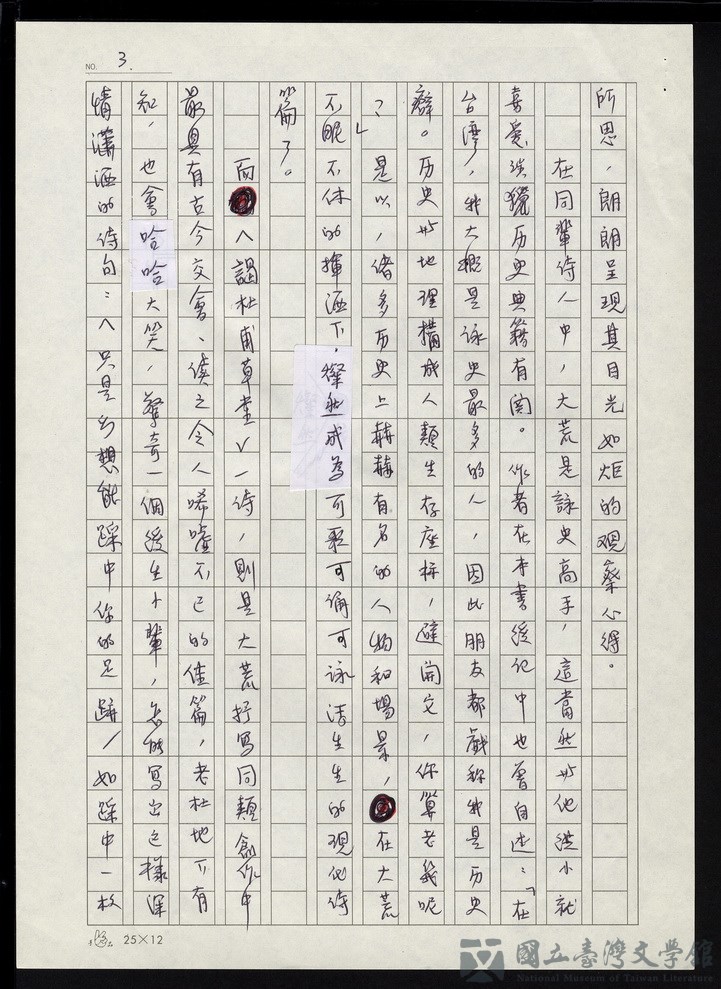 NO. 3.
所思，朗朗呈現其目光如炬的观察心得。
在同輩诗人中，大荒是詠史高手，這當然與他從小就
喜爱涉獵历史典籍有関。作者在本書後记中也曾自述：「在
台湾，我大概是詠史最多的人，因此朋友都戲称我是历史
癖。历史與地理構成人類生存座标，避開它，你算老幾呢
？」是以，诸多历史上赫赫有名的人物和場景，在大荒
不眠不休的揮洒下，燦然成為可歌可誦可詠活生生的現代诗
篇了。
而〈謁杜甫草堂〉一诗，則是大荒抒寫同類創作中
最具有古今交會、读之令人唏嘘不已的佳篇，老杜地下有
知，也會哈哈大笑，驚奇一個後生小輩，怎能寫出這樣深
情瀟洒的诗句：〈只是幻想能踩中你的足跡／如踩中一枚
25×12
國立臺灣文學館
National Museum of Taiwan Literature